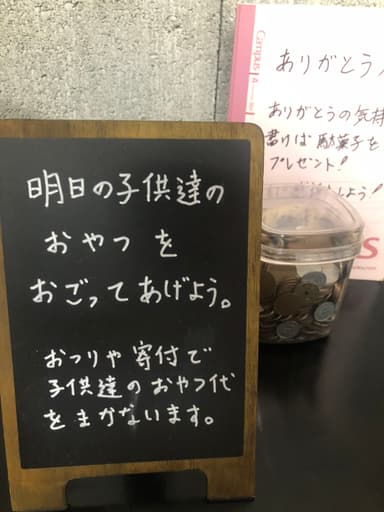 明日の子供達の
おやつを
おごってあげよう。
おつりや寄付で
子供達のおやつ代
をまかないます。
Campus
ありがとう
ありがとうの気持
書けば駄菓子を
プレゼント!
しよう!
S